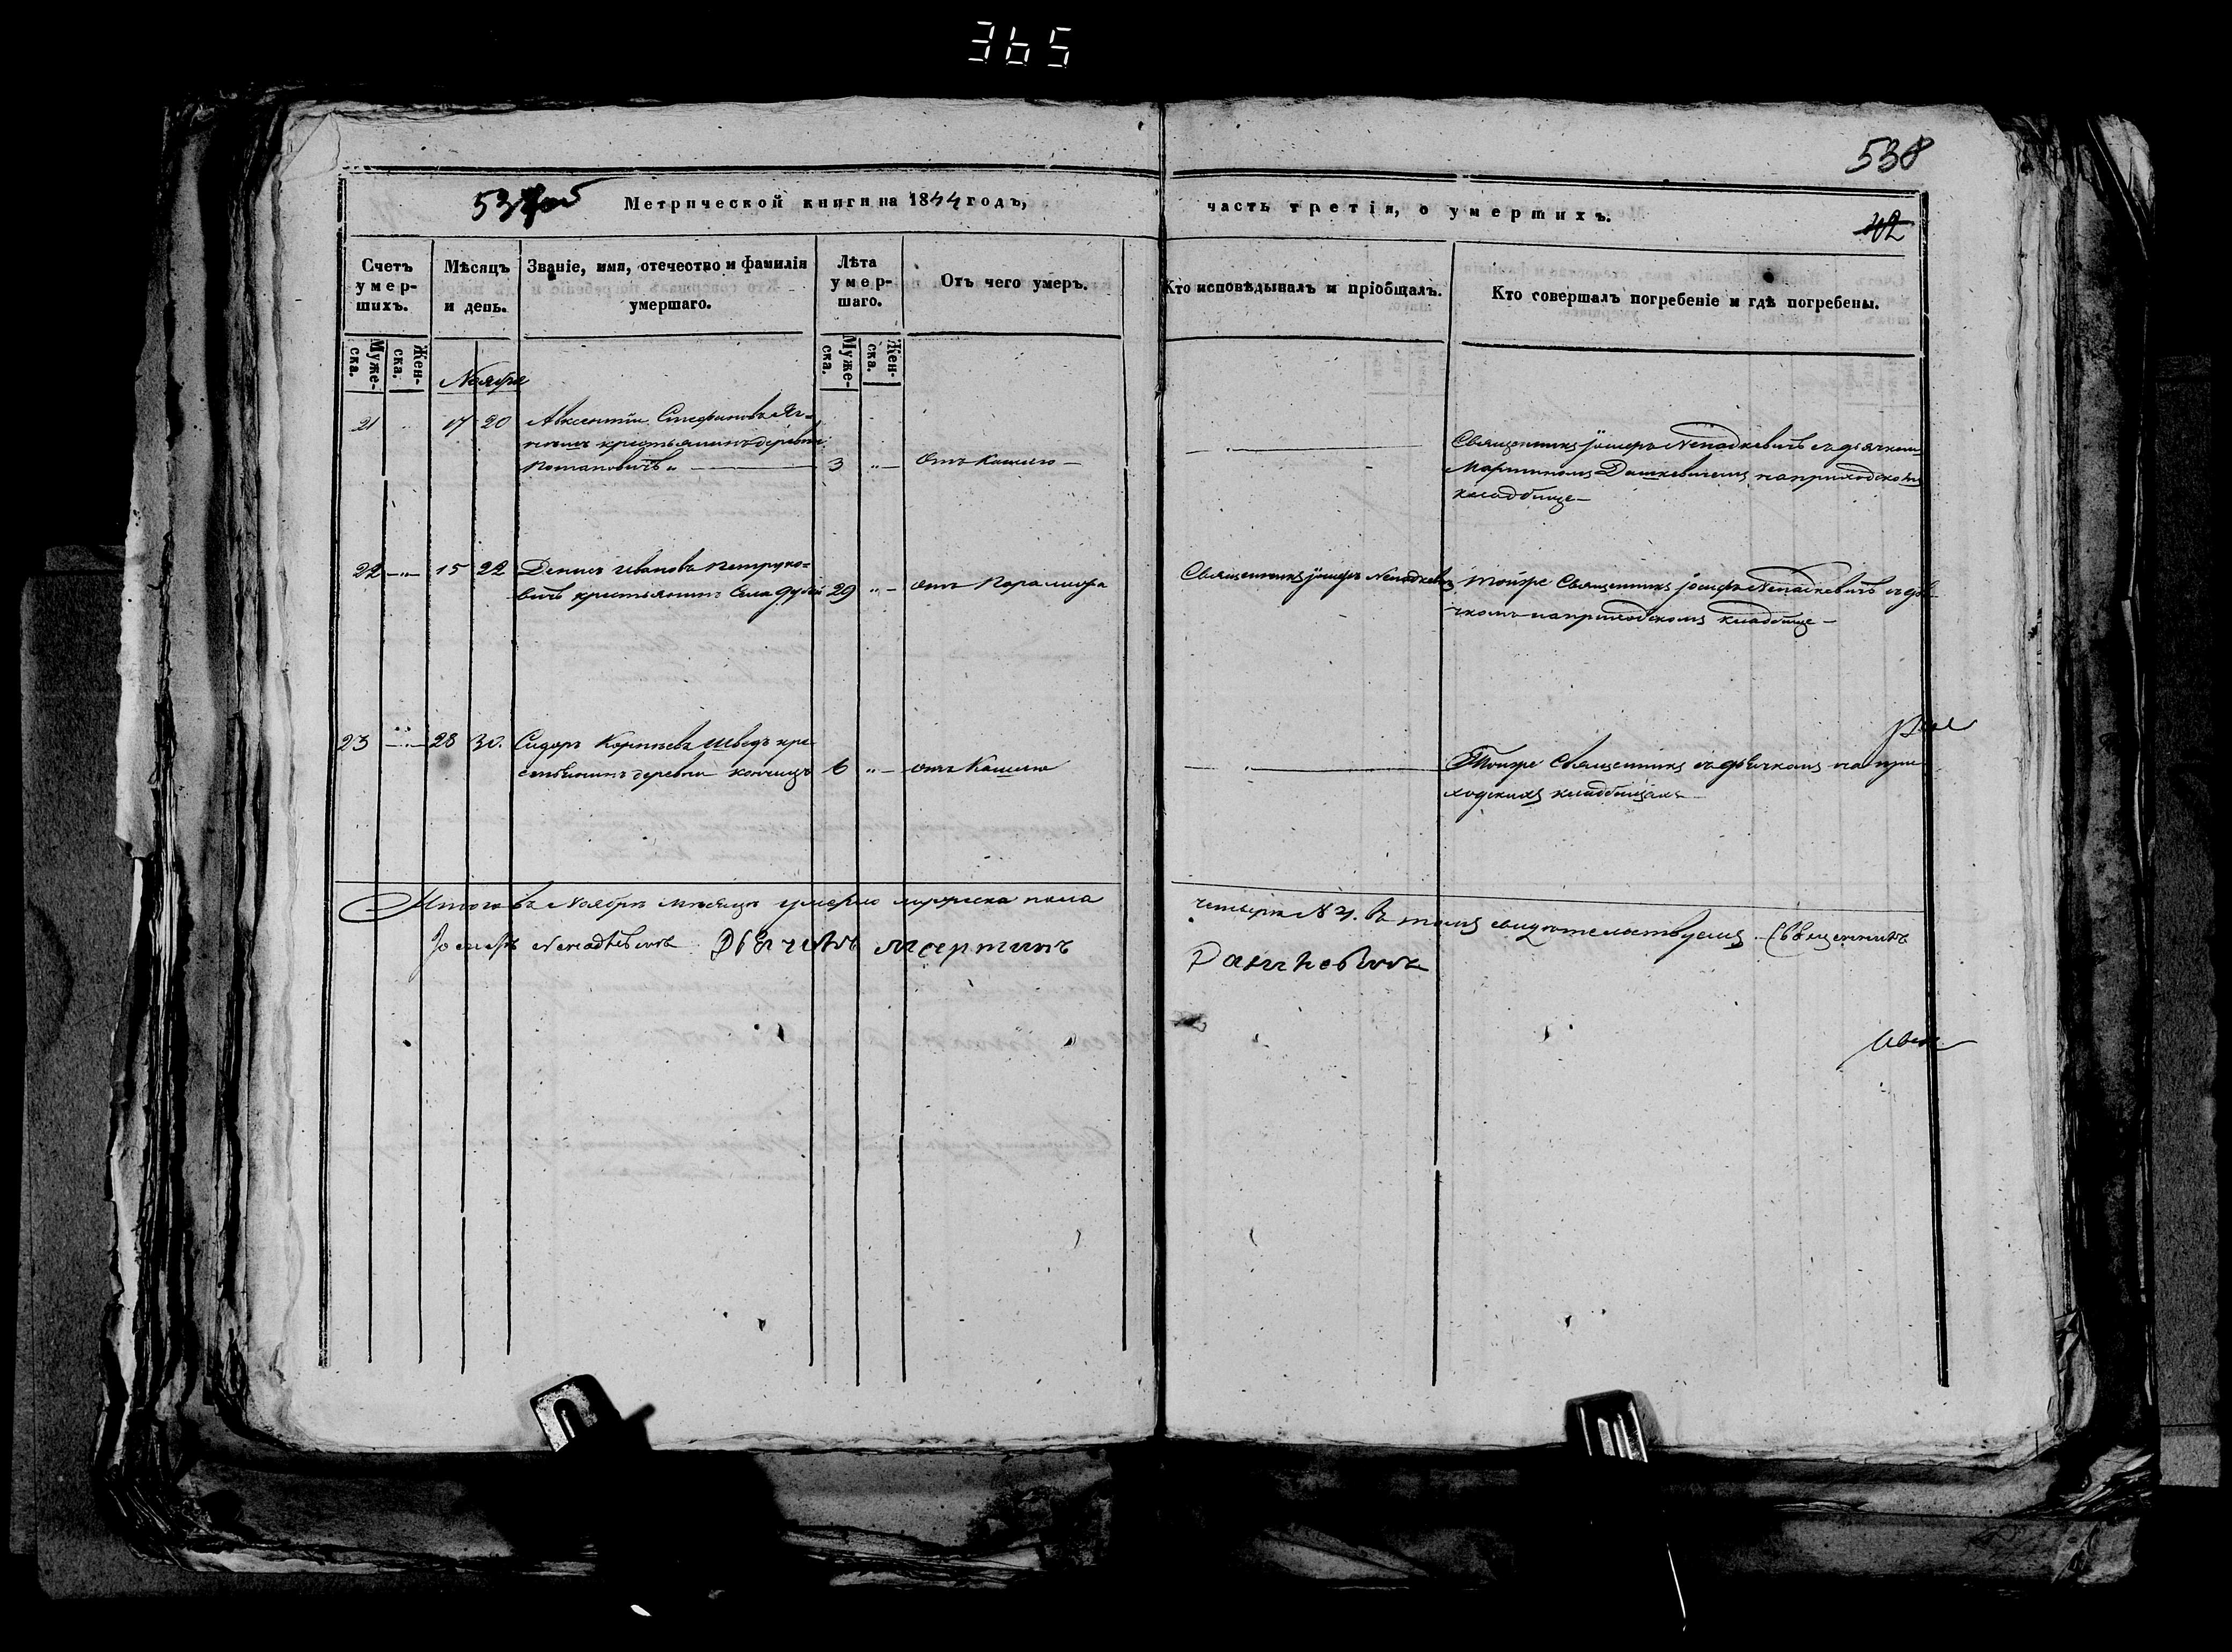 365
538
537об
Метрической книги на 1844 годъ,
часть третія, о умершихъ.
402
Счетъ умершихъ.
Мѣсяцъ и день.
Званіе, имя, отечество и фамилія умершаго.
Лѣта умершаго.
Отъ чего умеръ.
Кто исповѣдывалъ и пріобщалъ.
Кто совершалъ погребеніе и гдѣ погребены.
Мужеска.
Женска.
Мужеска.
Женска.
Ноября
21 17 20 Авксентій Стефановъ
крестьянинъ деревни
Потаповичъ 3 отъ кашлю
Священникъ Іосифъ Неподкевичъ съ дьячкомъ
Мартиномъ Дашкевичемъ на приходскомъ
кладбище
22 15 22 Денисъ Ивановъ Петруко-
вичъ крестьянинъ села 29 отъ Паралижа
Священникъ Іосифъ Неподкевичъ
тойже Священникъ Іосифъ Неподкевичъ съ дья-
чкомъ на приходскомъ кладбище
23 28 30. Сидоръ Корнѣевъ Шведъ кре-
стьянинъ деревни 6 отъ кашлю
Тойже Священникъ съ дьячкомъ на при-
ходскихъ кладбищахъ
Итого въ Ноябрѣ мѣсяцѣ умерло мужеска пола
четыри № 4. въ томъ свидѣтельствуемъ Священникъ
Іосифъ Неподкевичъ Дьячекъ Мартинъ
Дашкевичъ